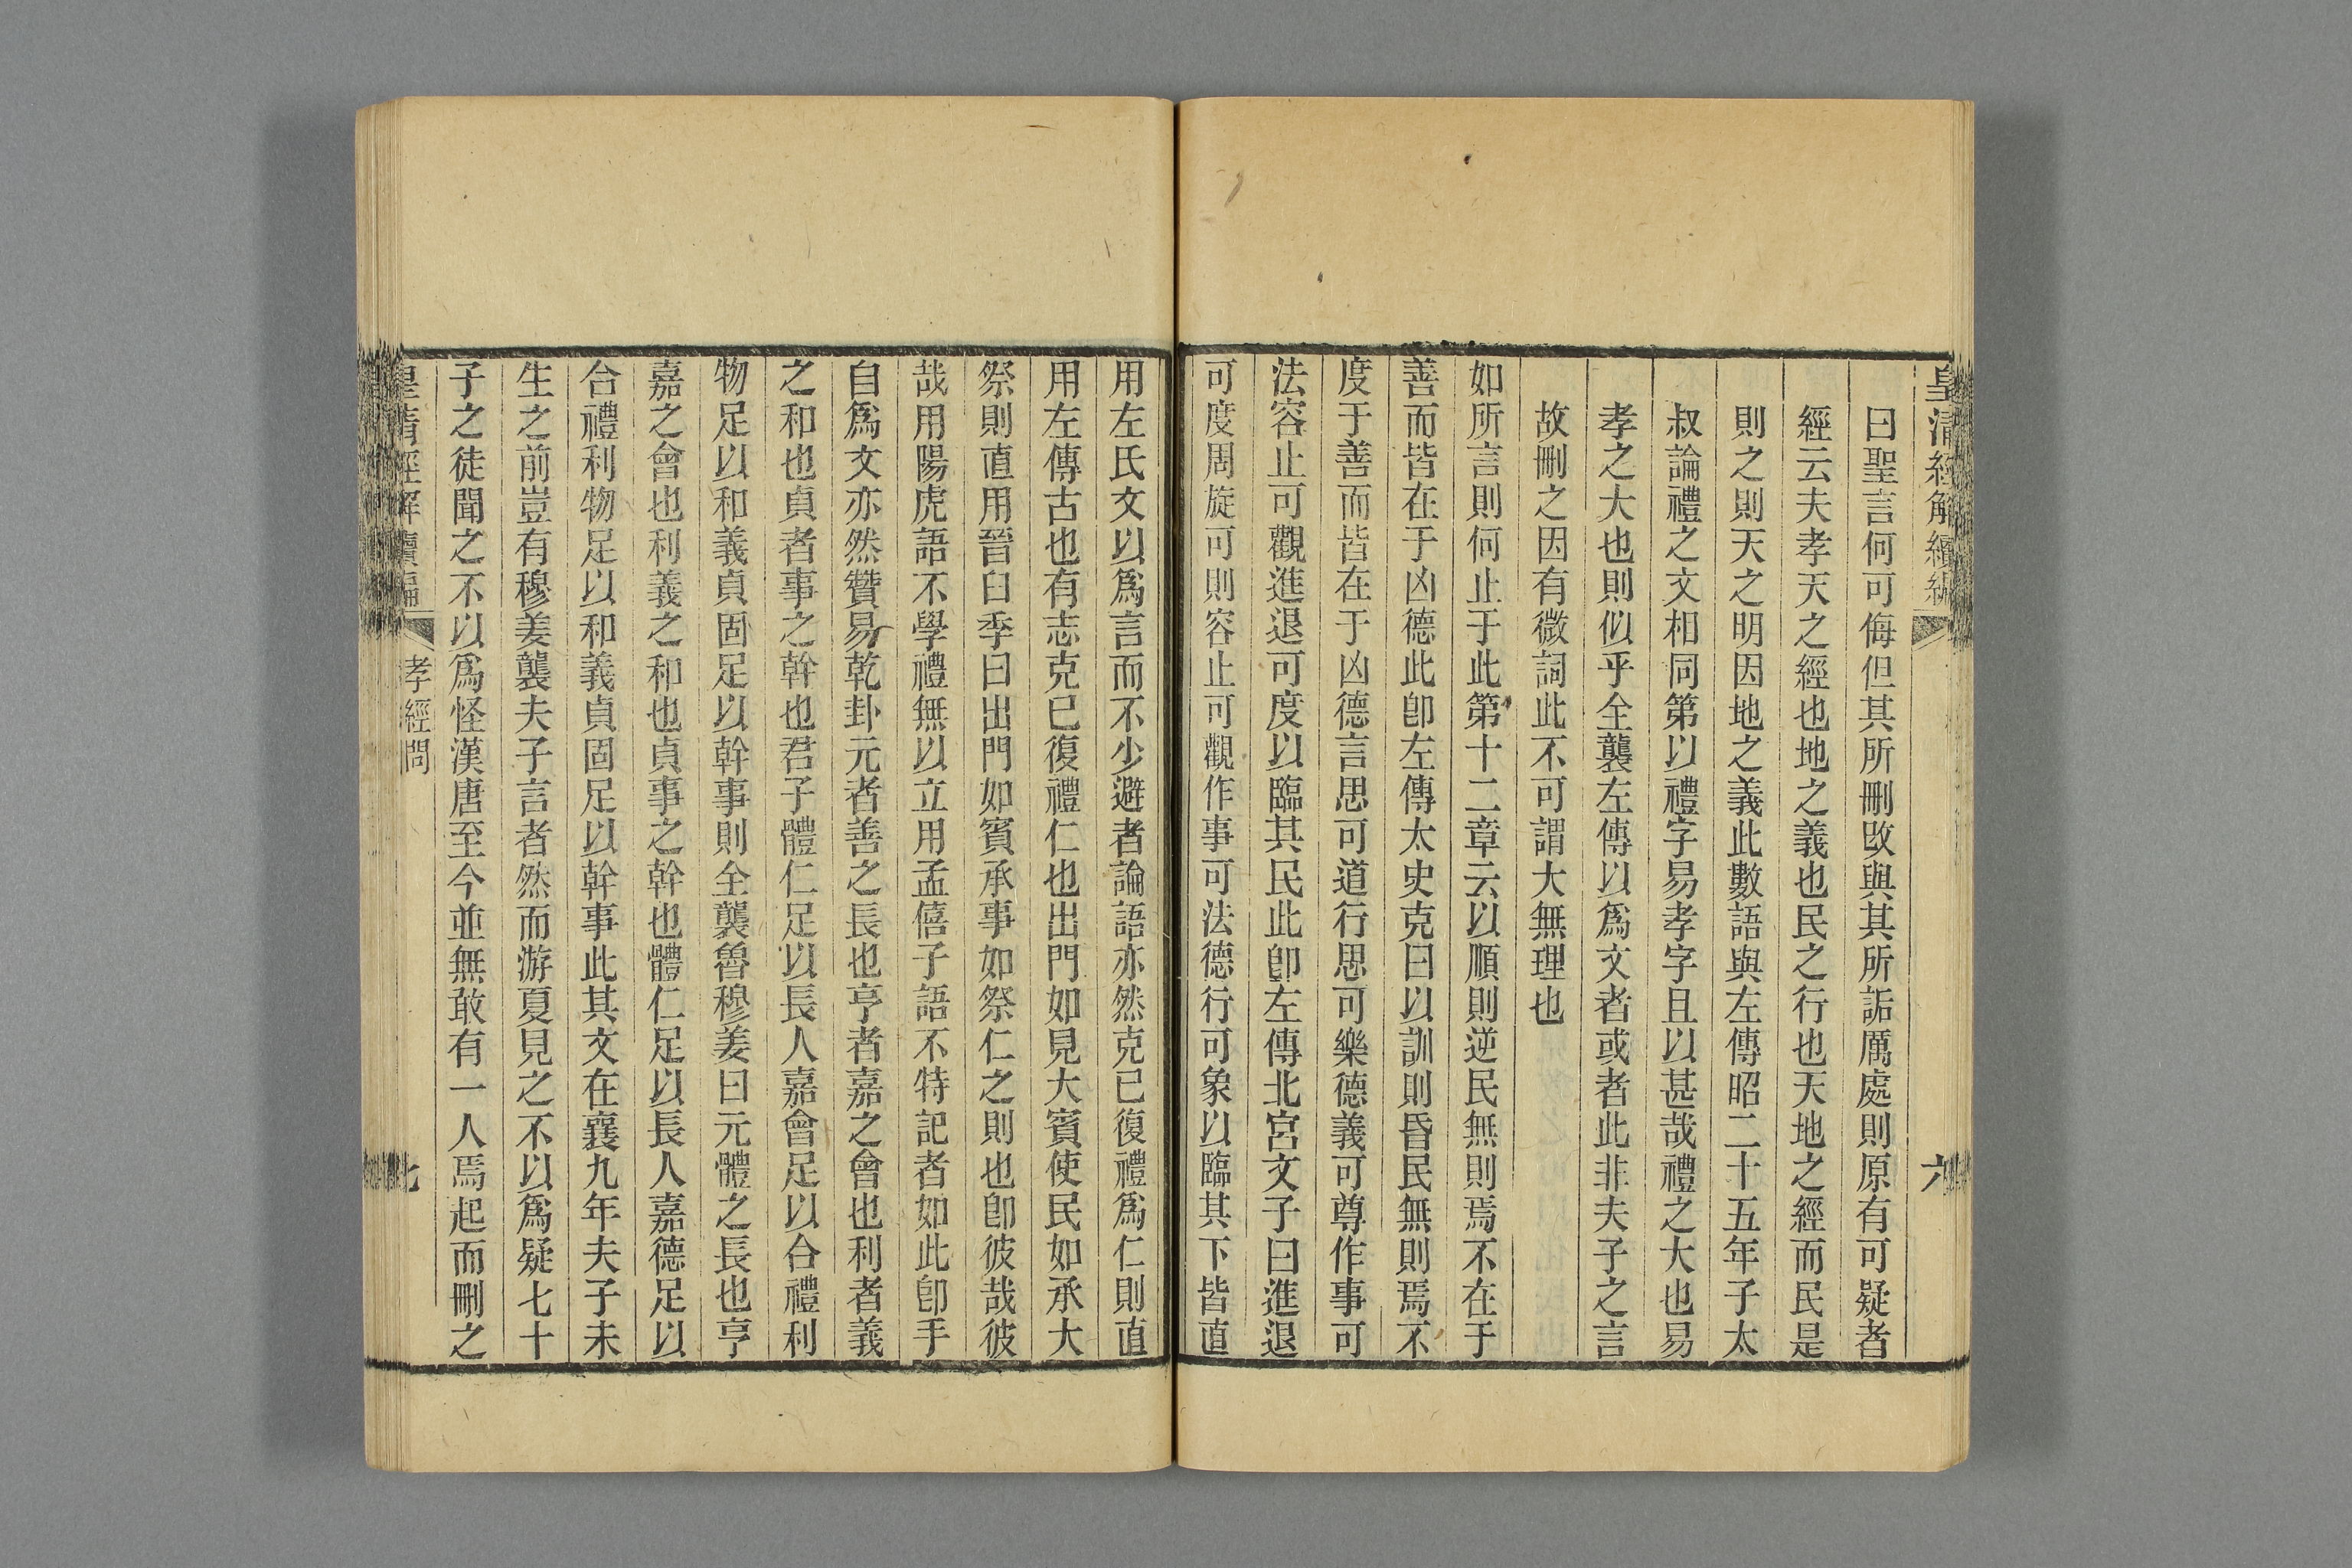 皇清經解續編
六
曰聖言何可侮但其所刪改與其所詬厲處則原有可疑者
經云夫孝天之經也地之義也民之行也天地之經而民是
則之則天之明因地之義此數語與左傳昭二十五年子太
叔論禮之文相同第以禮字易孝字且以甚哉禮之大也易
孝之大也則似乎全襲左傳以爲文者或者此非夫子之言
故刪之因有微詞此不可謂大無理也
如所言則何止于此第十二章云以順則逆民無則焉不在于
善而皆在于凶德此卽左傳太史克曰以訓則昏民無則焉不
度于善而皆在于凶德言思可道行思可樂德義可尊作事可
法容止可觀進退可度以臨其民此卽左傳北宮文子曰進退
可度周旋可則容止可觀作事可法德行可象以臨其下皆直
用左氏文以爲言而不少避者論語亦然克已復禮爲仁則直
用左傳古也有志克已復禮仁也出門如見大賓使民如承大
祭則直用晉臼季曰出門如賓承事如祭仁之則也卽彼哉彼
哉用陽虎語不學禮無以立用孟僖子語不特記者如此卽手
自爲文亦然贊易乾卦元者善之長也亨者嘉之會也利者義
之和也貞者事之幹也君子體仁足以長人嘉會足以合禮利
物足以和義貞固足以幹事則全襲魯穆姜曰元體之長也亨
嘉之會也利義之和也貞事之幹也體仁足以長人嘉德足以
合禮利物足以和義貞固足以幹事此其文在襄九年夫子未
生之前豈有穆姜襲夫子言者然而游夏見之不以爲疑七十
子之徒聞之不以爲怪漢唐至今並無敢有一人焉起而刪之
皇清經解續編
孝經問
七